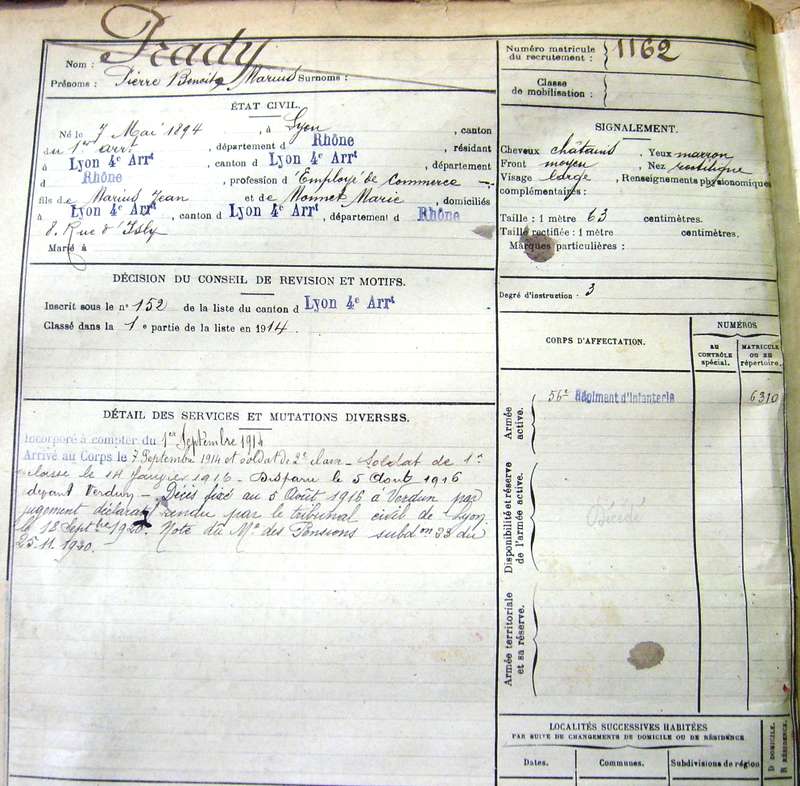 Prady
Nom :
Prénoms : Pierre Benoit Marius Surnoms :
ÉTAT CIVIL.
Né le 7 Mai 1894, à Lyon, canton
du 1er arrt, département d Rhône, résidant
à Lyon 4e Arrt, canton d Lyon 4e Arrt, département
d Rhône, profession d'Employé de Commerce
fils de Marius Jean et de Monnet Marie, domiciliés
à Lyon 4e Arrt, canton d Lyon 4e Arrt, département d Rhône
8. Rue d'Isly
Marié à
DÉCISION DU CONSEIL DE REVISION ET MOTIFS.
Inscrit sous le n° 152 de la liste du canton d Lyon 4e Arrt
Classé dans la 1e partie de la liste en 1914.
DÉTAIL DES SERVICES ET MUTATIONS DIVERSES.
Incorporé à compter du 1er Septembre 1914
Arrivé au Corps le 7 Septembre 1914 et soldat de 2e classe - Soldat de 1e
classe le 14 Janvier 1916 - Disparu le 5 Aout 1916
devant Verdun - Décès fixé au 5 Août 1916 à Verdun par
jugement déclarat rendu par le tribunal civil de Lyon
le 18 Septbre 1920. Note du Mre des Pensions subdon 33 du
25.11.1920.
Numéro matricule
du recrutement : 1162
Classe
de mobilisation :
SIGNALEMENT.
Cheveux châtains, Yeux marron
Front moyen, Nez rectiligne
Visage large, Renseignements physionomiques
complémentaires :
Taille : 1 mètre 63 centimètres.
Taille rectifiée : 1 mètre centimètres.
Marques particulières :
Degré d'instruction : 3
CORPS D'AFFECTATION.
NUMÉROS
AU
CONTRÔLE
spécial.
MATRICULE
OU AU
répertoire.
Armée
active.
56e Régiment d'Infanterie 6310
Disponibilité et réserve
de l'armée active.
Décédé
Armée territoriale
et sa réserve.
LOCALITÉS SUCCESSIVES HABITÉES
PAR SUITE DE CHANGEMENTS DE DOMICILE OU DE RÉSIDENCE.
Dates. Communes. Subdivisions de région
D DOMICILE.
R RÉSIDENCE.